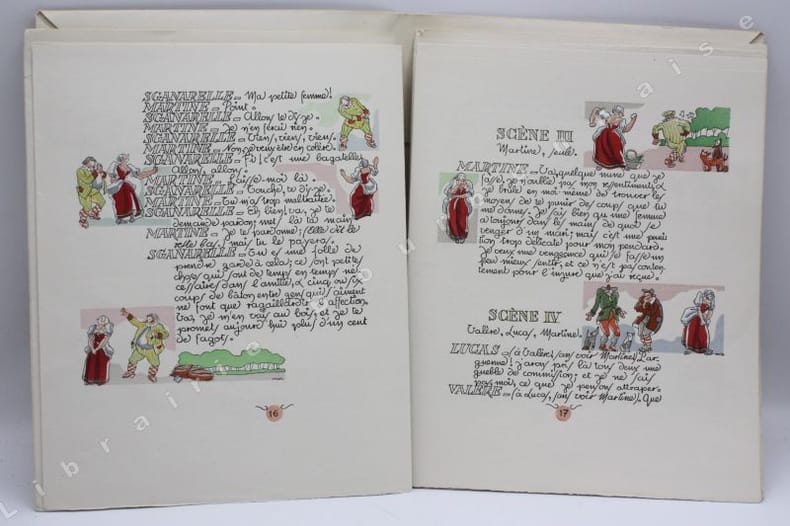 SGANARELLE _ Ma petite femme!
MARTINE _ Point.
SGANARELLE _ Allons, te dis-je.
MARTINE _ Je n'en ferai rien.
SGANARELLE _ Viens, viens, viens.
MARTINE _ Non, je veux être en colère.
SGANARELLE _ Fi! c'est une bagatelle,
Allons, allons.
MARTINE _ Laisse-moi là.
SGANARELLE _ Touche, te dis-je.
MARTINE _ Tu m'as trop maltraitée.
SGANARELLE _ Eh bien! va, je te
demande pardon; mets là ta main
MARTINE _ Je te pardonne; (Elle dit le
reste bas) mais tu le payeras.
SGANARELLE _ Tu es une folle de
prendre garde à cela; ce sont petites
choses qui sont de temps en temps né-
cessaires dans l'amitié, & cinq ou six
coups de bâton entre gens qui s'aiment
ne font que ragaillardir l'affection.
Va, je m'en vais au bois, et je te
promets aujourd'hui plus d'un cent
de fagots.
16
SCÈNE III
Martine, seule.
MARTINE _ Va, quelque mine que je
fasse, je n'oublie pas mon ressentiment; &
je brûle en moi-même de trouver les
moyens de te punir des coups que tu
me donnes. Je sais bien qu'une femme
a toujours dans les mains de quoi se
venger d'un mari; mais c'est une puni-
tion trop délicate pour mon pendard.
Je veux une vengeance qui se fasse un
peu mieux sentir, et ce n'est pas conten-
tement pour l'injure que j'ai reçue.
SCÈNE IV
Valère, Lucas, Martine.
LUCAS _ (à Valère, sans voir Martine) Par-
guenne! j'avons pris là tous deux une
gueble de commission; et je ne sais
pas moi, ce que je pensons attraper.
VALÈRE _ (à Lucas, sans voir Martine). Que
17
Librairie